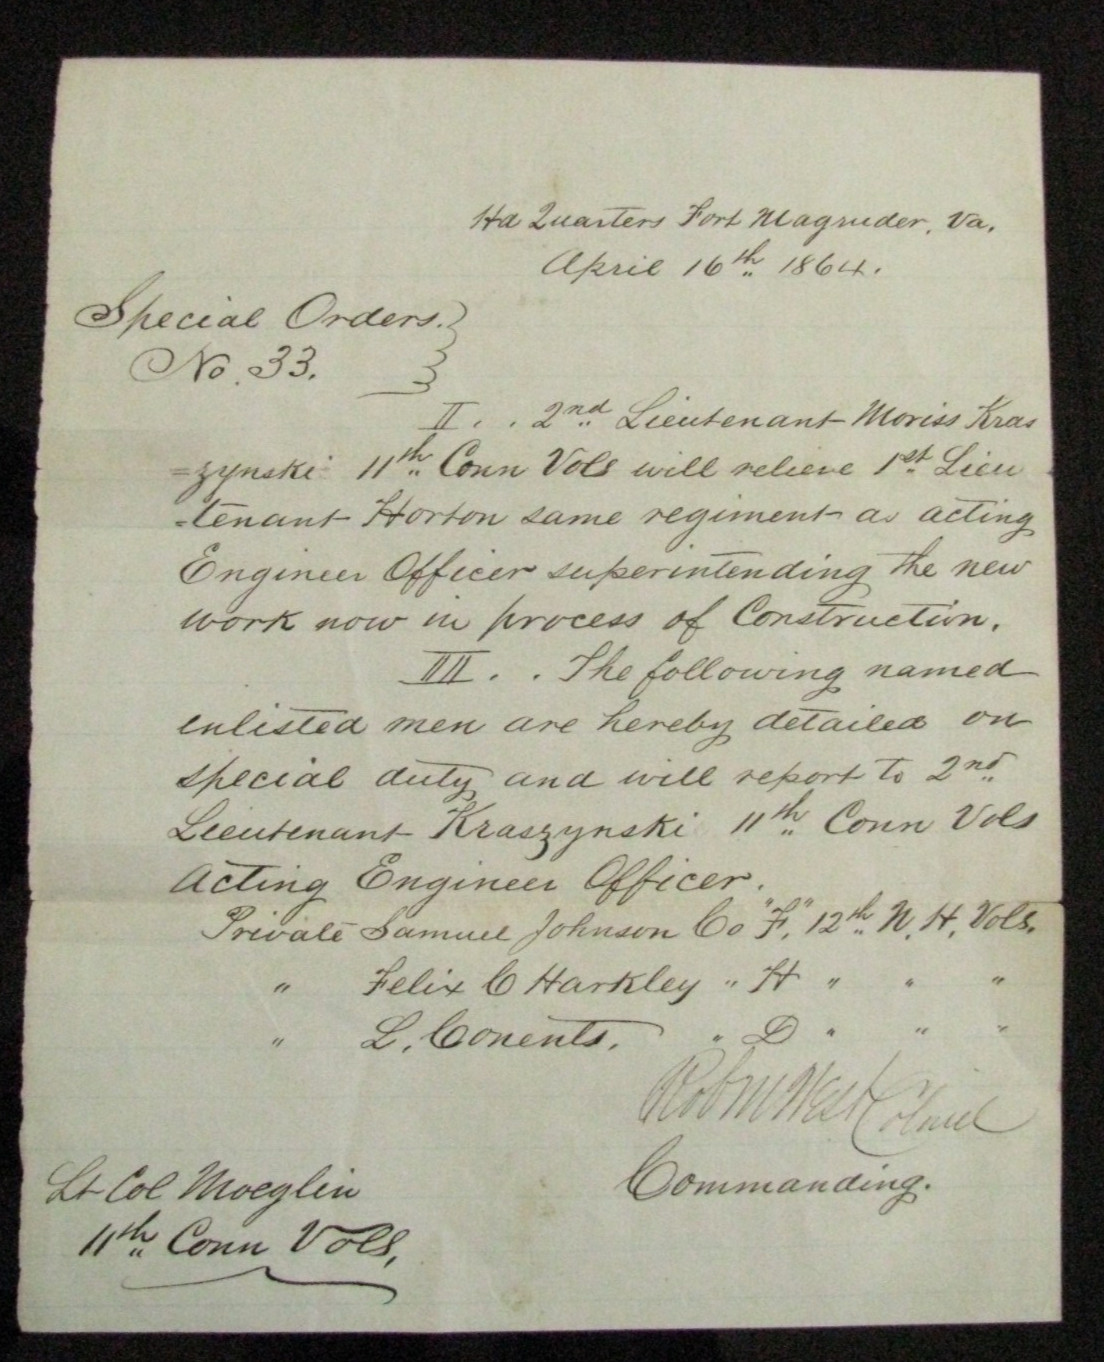 Hd Quarters Fort Magruder, Va.
April 16th 1864.
Special Orders.
No. 33.
II. . 2nd Lieutenant Moriss Kras
=zynski 11th Conn Vols will relieve 1st Lieu
=tenant Horton same regiment as acting
Engineer Officer superintending the new
work now in process of Construction.
III. . The following named
enlisted men are hereby detailed on
special duty and will report to 2nd
Lieutenant Kraszynski 11th Conn Vols
Acting Engineer Officer.
Private Samuel Johnson Co "F," 12th N. H. Vols.
" Felix C Harkley " H " " "
" L. Conents. " D " " "
Robt M West Colonel
Commanding.
Lt Col Moeglin
11th Conn Vols,